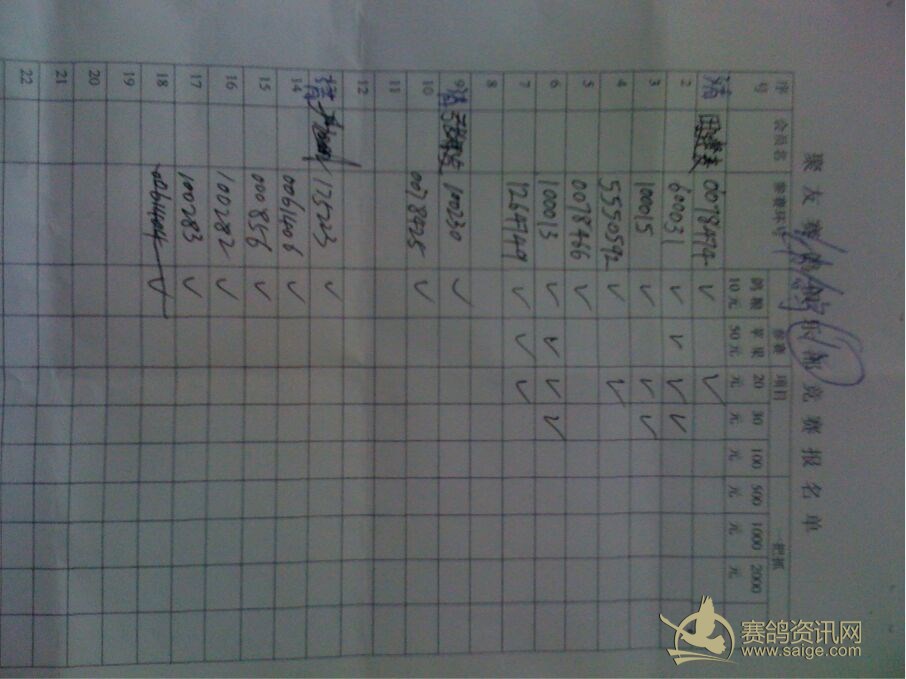 聚友赛鸽俱乐部竞赛报名单
序号 会员名 参赛环号 参赛项目 一把抓
鸽粮10元 苹果50元 20元 30元 100元 500元 1000元 2000元
0078474 ✓ ✓
2 600031 ✓ ✓ ✓ ✓
3 100015 ✓ ✓ ✓
4 5550592 ✓ ✓
5 0078466 ✓
6 100013 ✓ ✓ ✓ ✓
7 1264749 ✓ ✓ ✓
8
9 100230 ✓
10 0078425 ✓
11
12
173223 ✓
14 0061406 ✓
15 000856 ✓
16 100282 ✓
17 100283 ✓
18 ✓
19
20
21
22
赛鸽资讯网
www.saige.com